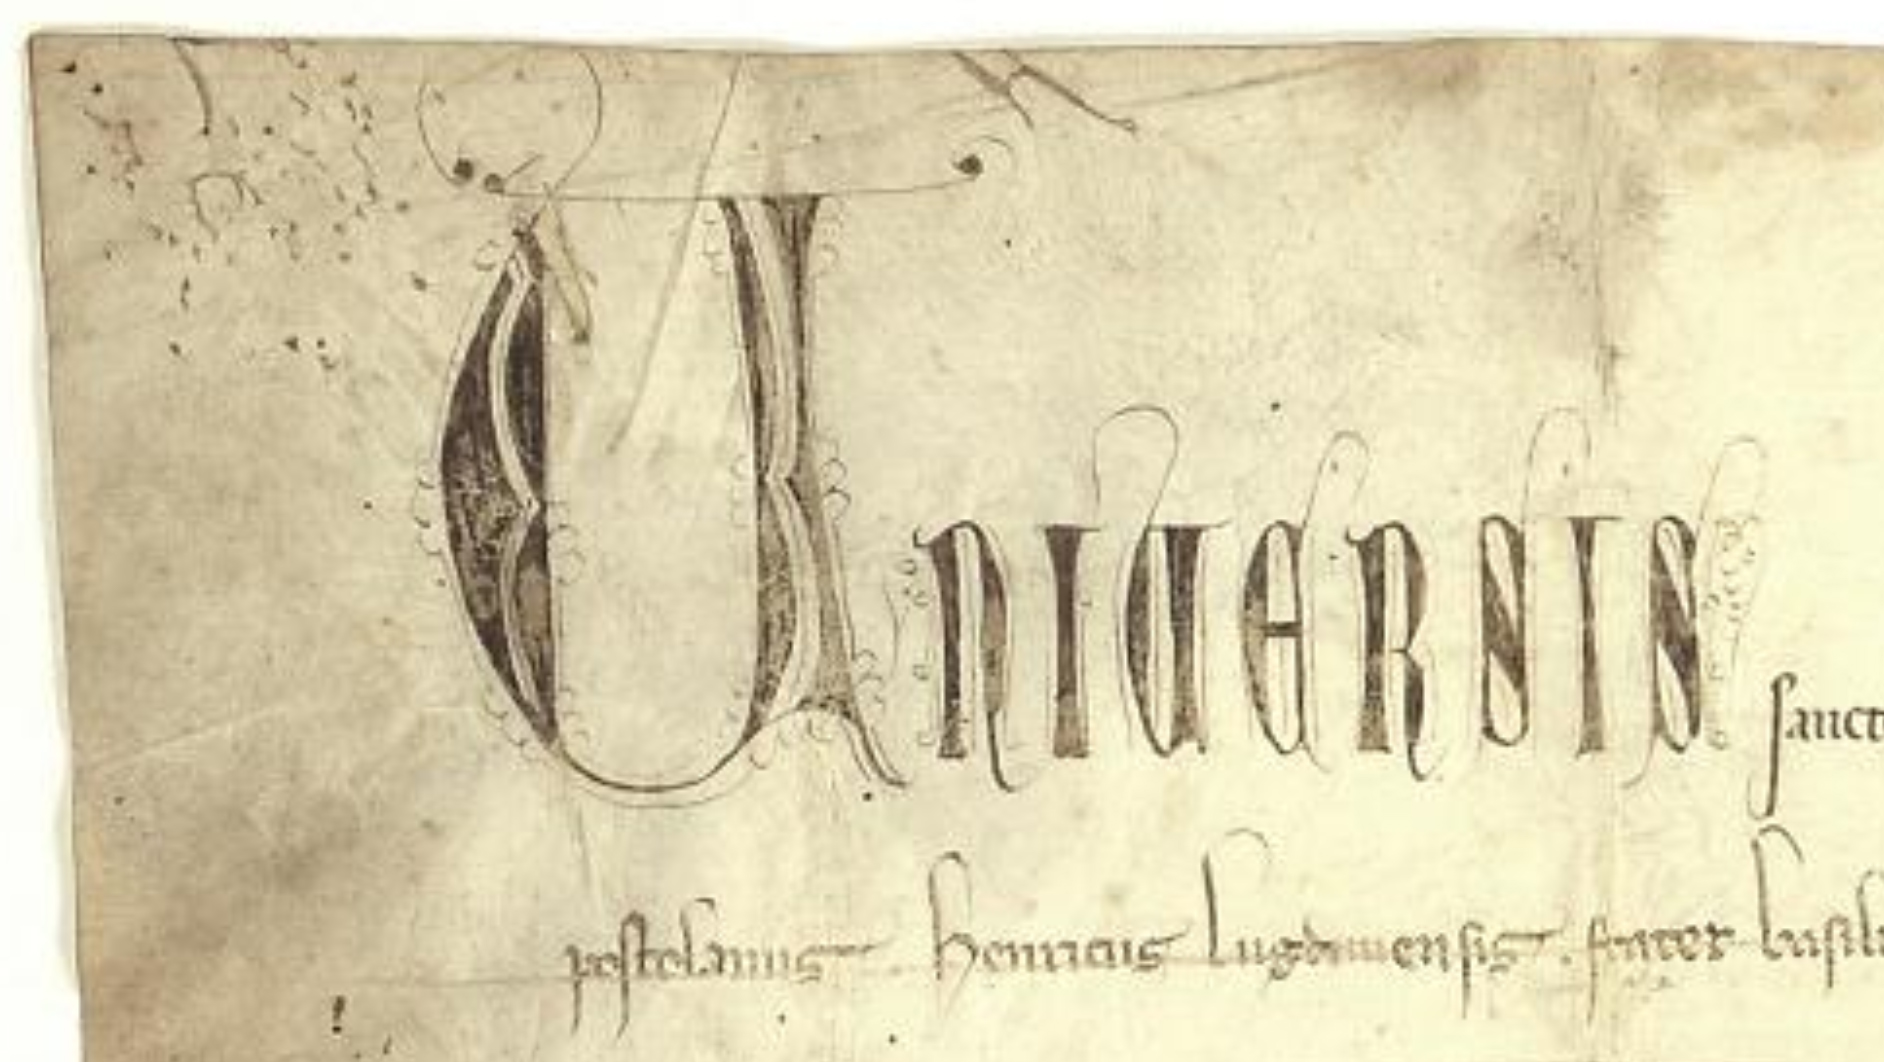 UNIUERSIS sanct
postolanus . henricus lugdunensis . frater basili